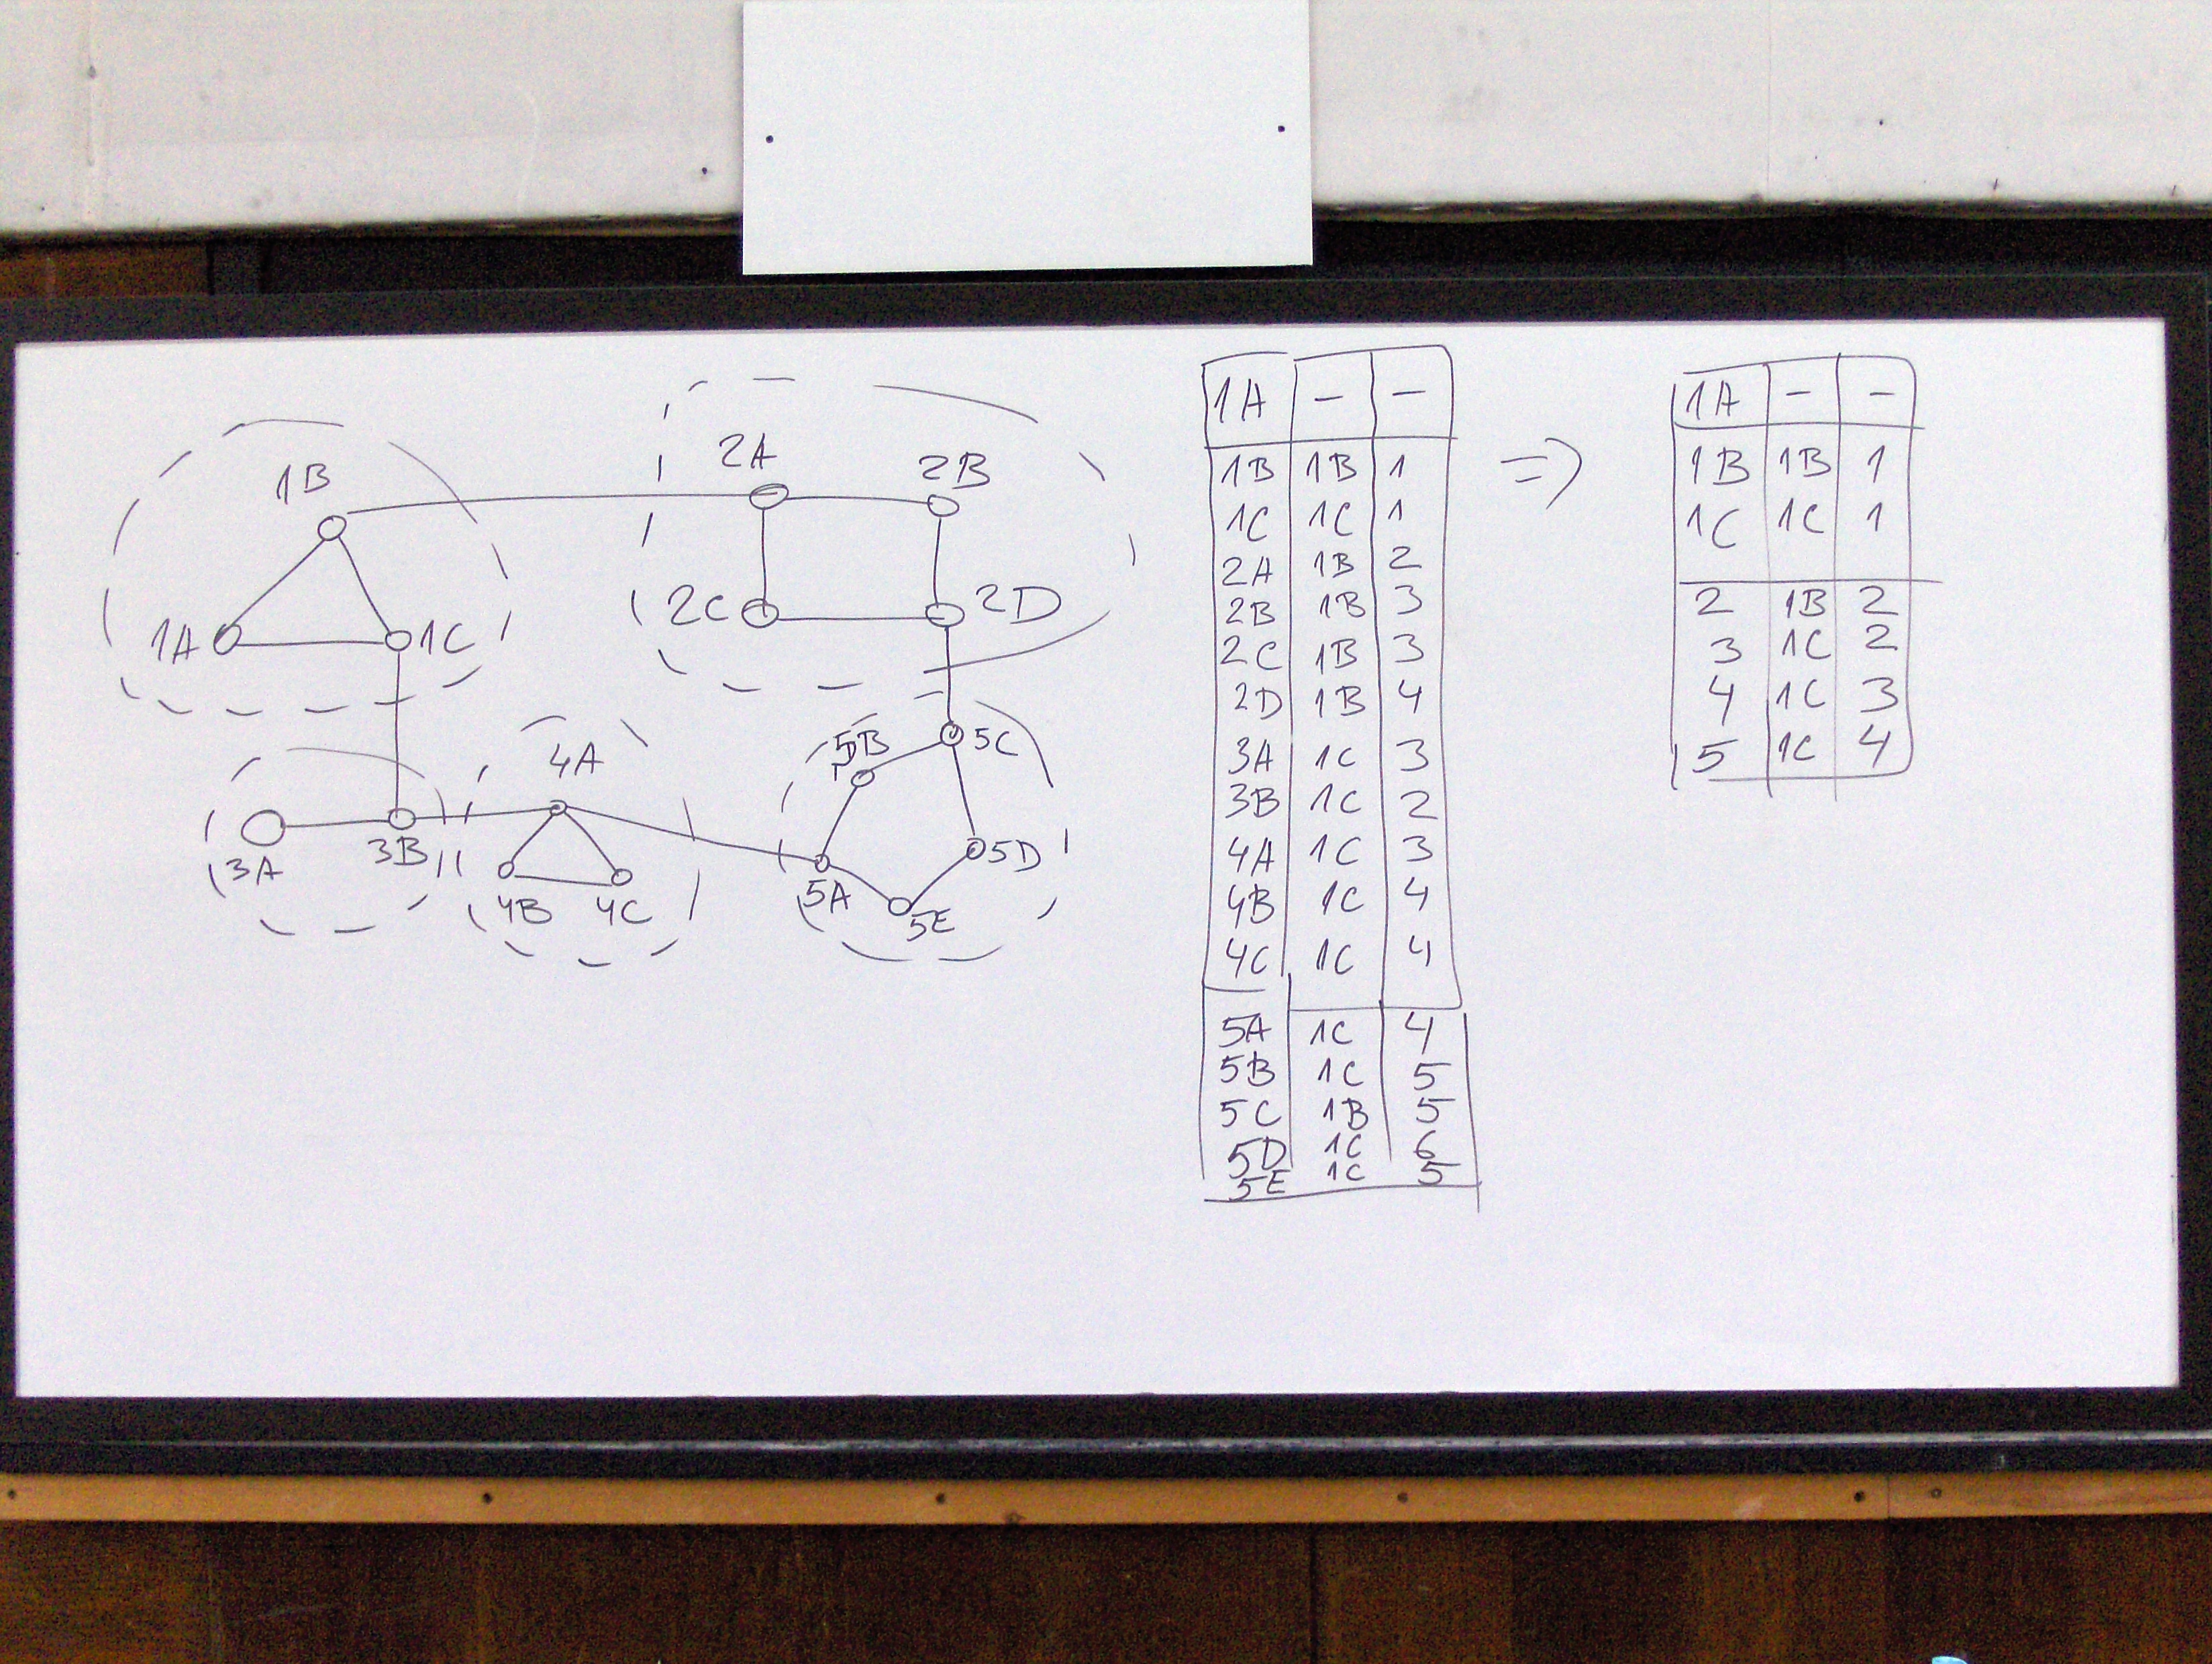 1B
2A
2B
1A
1C
2C
2D
5B
5C
4A
3A
3B
4B
4C
5A
5D
5E
1A - -
1B 1B 1
1C 1C 1
2A 1B 2
2B 1B 3
2C 1B 3
2D 1B 4
3A 1C 3
3B 1C 2
4A 1C 3
4B 1C 4
4C 1C 4
5A 1C 4
5B 1C 5
5C 1B 5
5D 1C 6
5E 1C 5
=>
1A - -
1B 1B 1
1C 1C 1
2 1B 2
3 1C 2
4 1C 3
5 1C 4